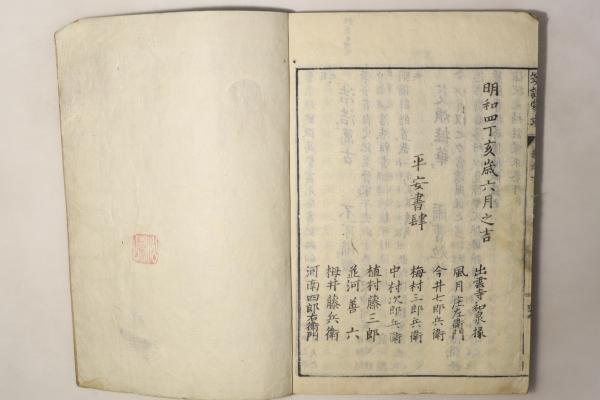 明和四丁亥歳六月之吉
平安書肆
出雲寺和泉掾
風月庄左衛門
今井七郎兵衛
梅村三郎兵衛
中村次郎兵衛
植村藤三郎
並河善六
梅井藤兵衛
河南四郎右衛門